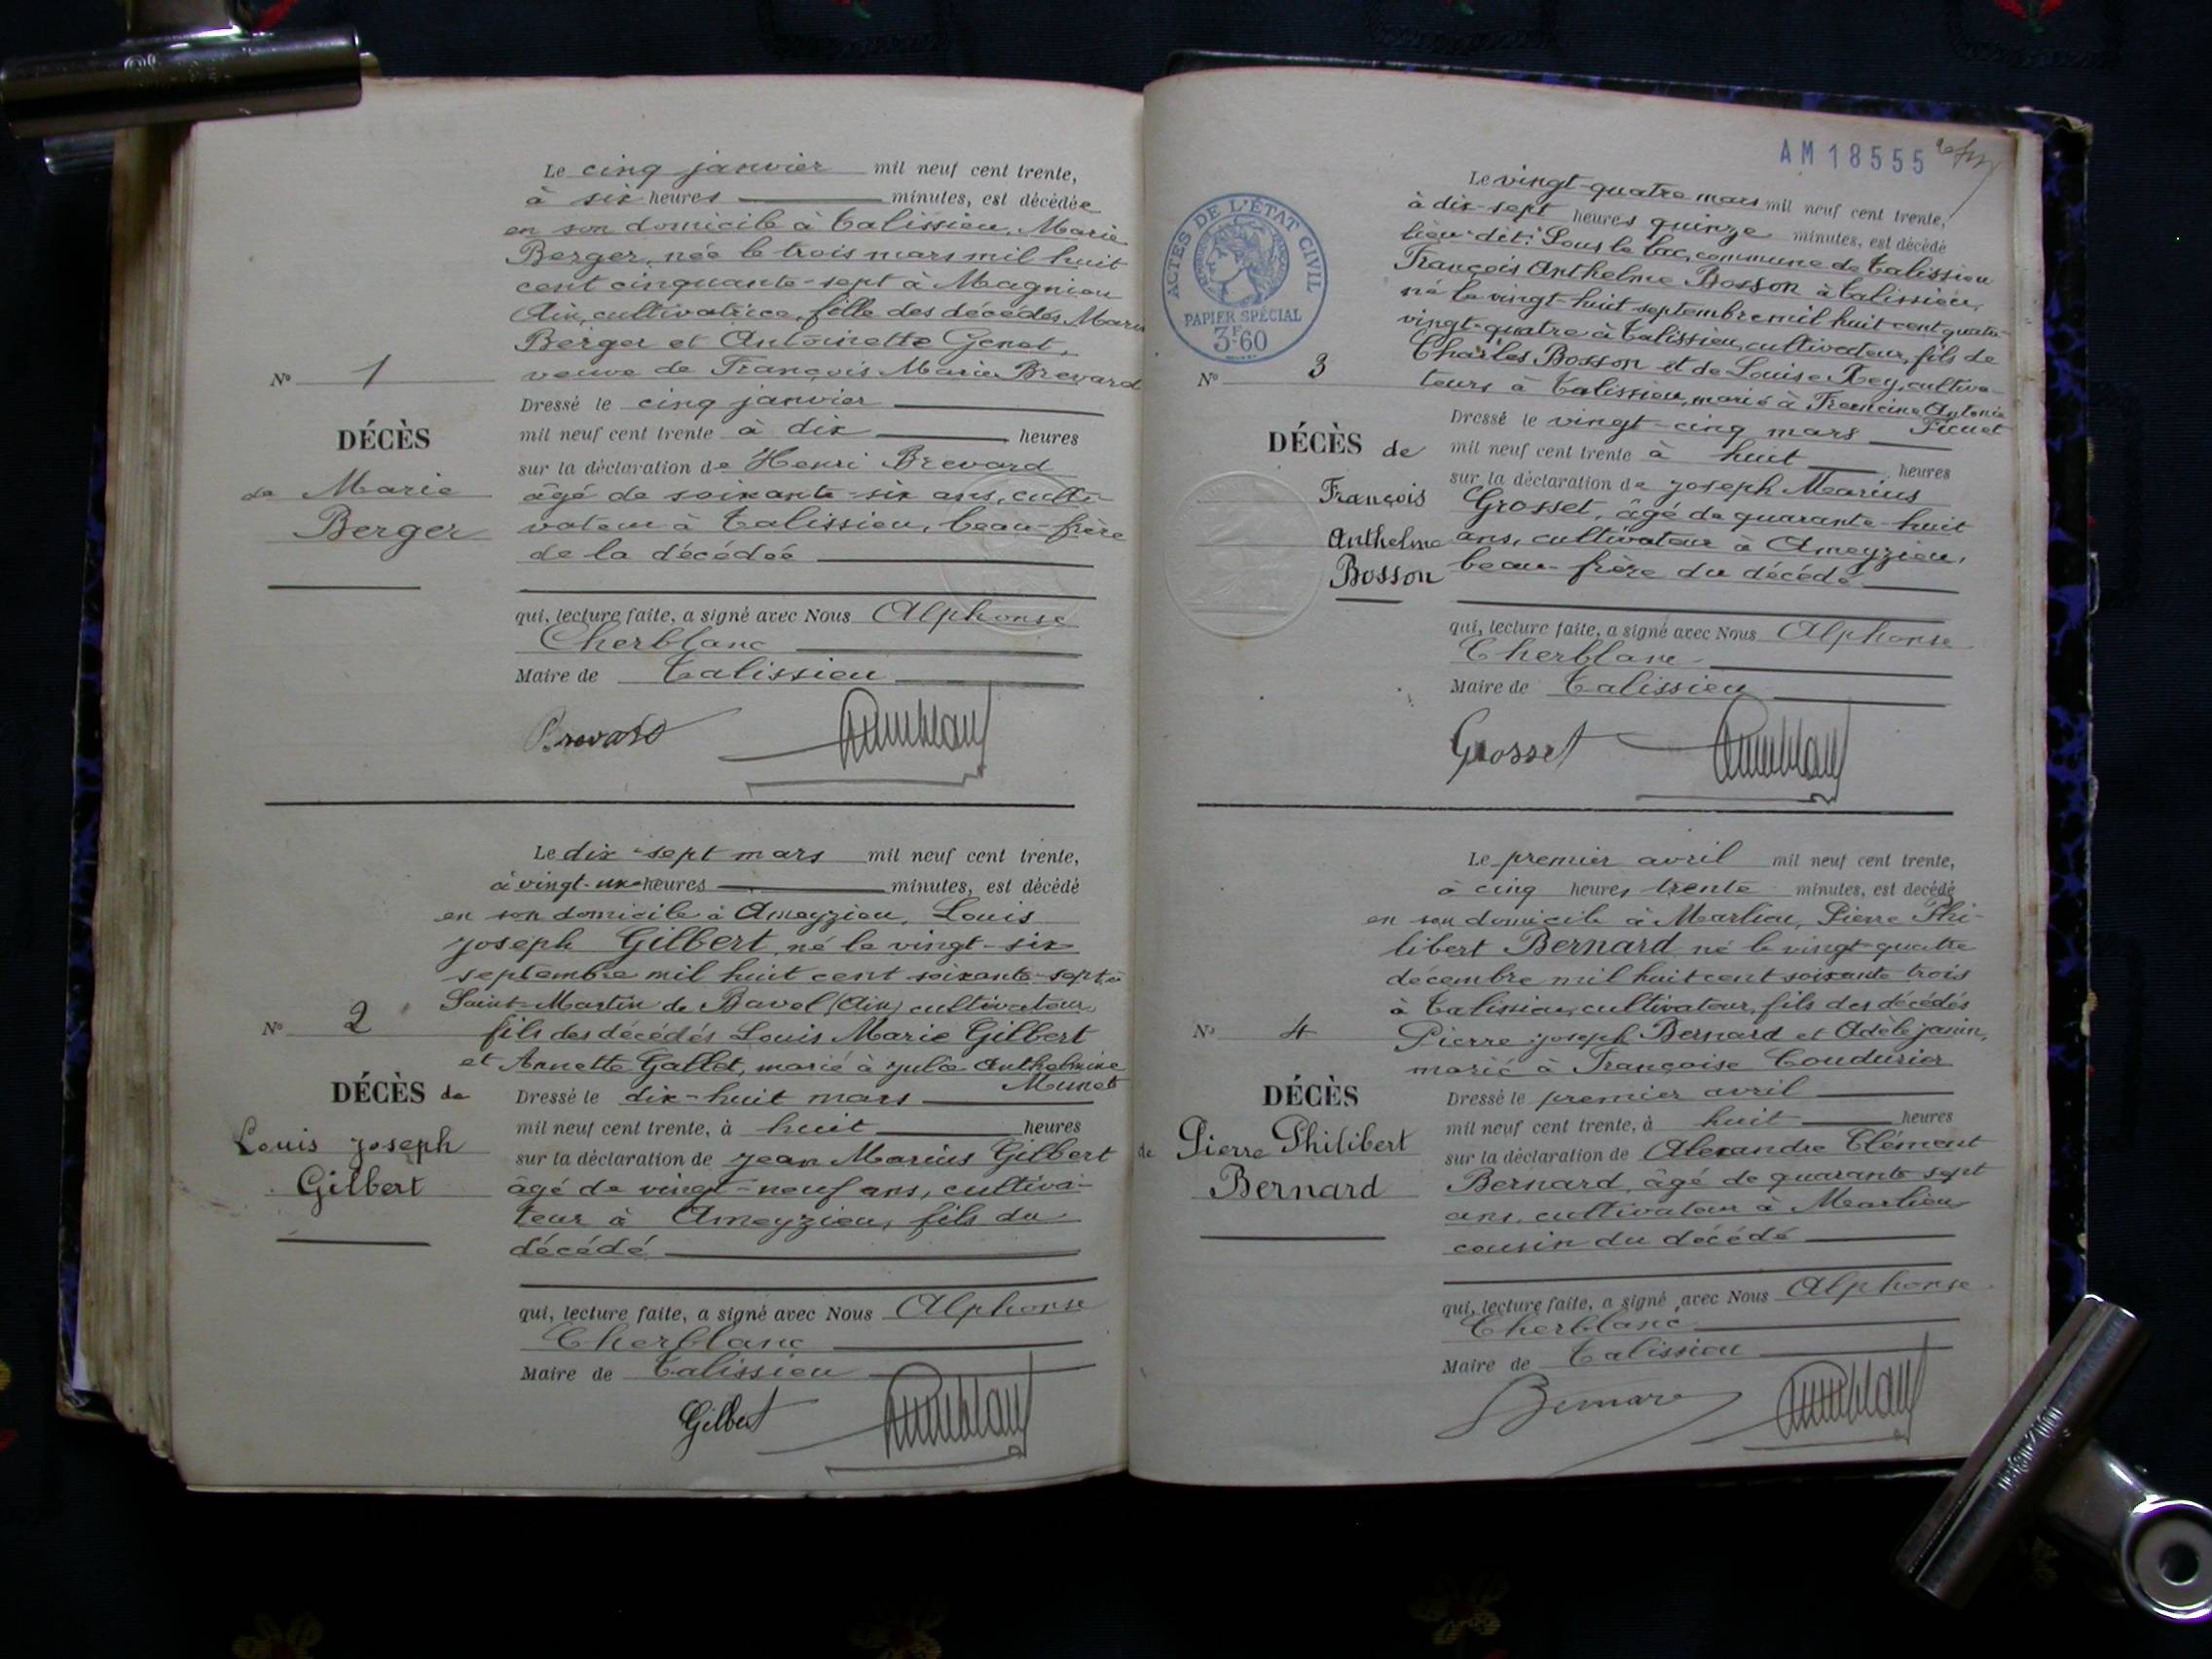 Le cinq janvier mil neuf cent trente,
à six heures minutes, est décédée
en son domicile à Talissieu, Marie
Berger, née le trois mars mil huit
cent cinquante-sept à Magnieu
Ain, cultivatrice, fille des décédés Marie
Berger et Antoinette Genet,
veuve de François Marie Brevard
N° 1
Dressé le cinq janvier
DÉCÈS
mil neuf cent trente à dix heures
sur la déclaration de Henri Brevard
de Marie
Berger
âgé de soixante-six ans, culti-
vateur à Talissieu, beau-frère
de la décédée
qui, lecture faite, a signé avec Nous Alphonse
Cherblanc
Maire de Talissieu
Brevard
Le dix-sept mars mil neuf cent trente,
à vingt-une heures minutes, est décédé
en son domicile à Ameyzieu, Louis
Joseph Gilbert, né le vingt-six
septembre mil huit cent soixante-sept à
Saint-Martin de Bavel (Ain) cultivateur,
N° 2
fils des décédés Louis Marie Gilbert
et Annette Gallet, marié à Julie Anthelmine
Munet
DÉCÈS de
Louis Joseph
Gilbert
Dressé le dix-huit mars
mil neuf cent trente, à huit heures
sur la déclaration de Jean Marius Gilbert
âgé de vingt-neuf ans, cultiva-
teur à Ameyzieu, fils du
décédé
qui, lecture faite, a signé avec Nous Alphonse
Cherblanc
Maire de Talissieu
Gilbert
AM 18555
ACTES DE L'ÉTAT CIVIL
PAPIER SPÉCIAL
3F60
Le vingt-quatre mars mil neuf cent trente,
à dix-sept heures quinze minutes, est décédé
lieu-dit: Sous le Lac, commune de Talissieu
François Anthelme Bosson à Talissieu,
né le vingt-huit septembre mil huit cent quatre-
vingt-quatre à Talissieu, cultivateur, fils de
Charles Bosson et de Louise Rey, cultiva-
teurs à Talissieu, marié à Francine Antonie
Picuet
N° 3
DÉCÈS de
François
Anthelme
Bosson
Dressé le vingt-cinq mars
mil neuf cent trente à huit heures
sur la déclaration de Joseph Marius
Grosset, âgé de quarante-huit
ans, cultivateur à Ameyzieu,
beau-frère du décédé
qui, lecture faite, a signé avec Nous Alphonse
Cherblanc
Maire de Talissieu
Grosset
Le premier avril mil neuf cent trente,
à cinq heures trente minutes, est décédé
en son domicile à Marlieu, Pierre Phi-
libert Bernard né le vingt-quatre
décembre mil huit cent soixante trois
à Talissieu, cultivateur, fils des décédés
N° 4
Pierre Joseph Bernard et Adèle Janin,
marié à Françoise Coudurier
DÉCÈS
de Pierre Philibert
Bernard
Dressé le premier avril
mil neuf cent trente, à huit heures
sur la déclaration de Alexandre Clément
Bernard, âgé de quarante-sept
ans, cultivateur à Marlieu
cousin du décédé
qui, lecture faite, a signé avec Nous Alphonse
Cherblanc
Maire de Talissieu
Bernard